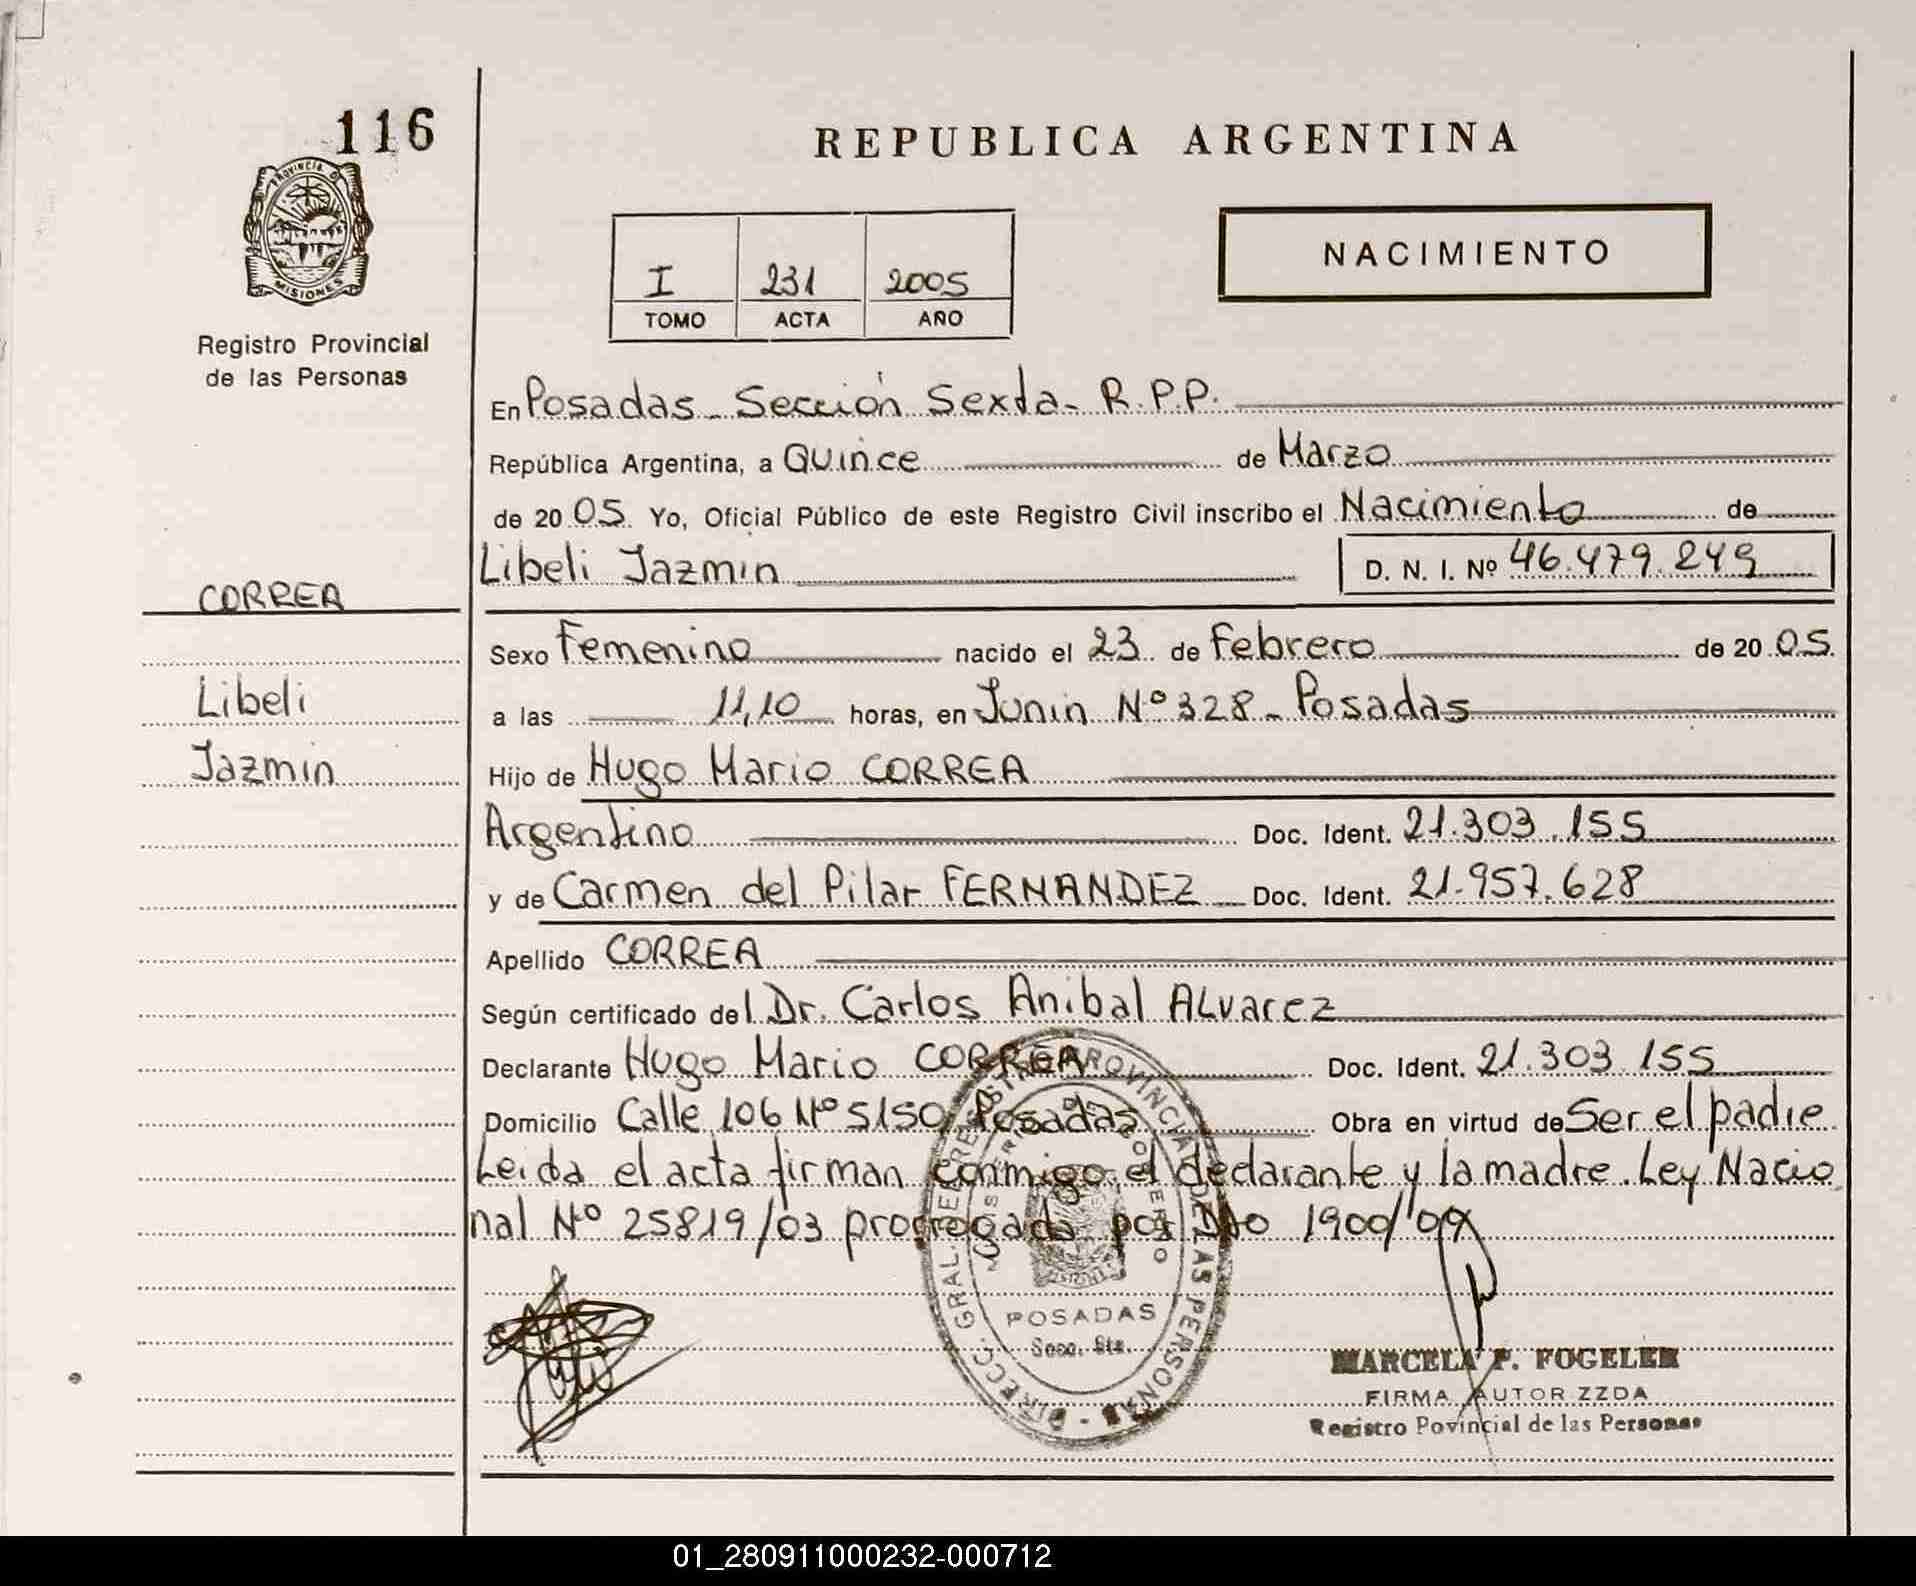 116
PROVINCIA D
MISIONES
Registro Provincial
de las Personas
REPUBLICA ARGENTINA
I 231 2005
TOMO ACTA AÑO
NACIMIENTO
En Posadas - Sección Sexta - R.P.P.
República Argentina, a Quince de Marzo
de 2005 Yo, Oficial Público de este Registro Civil inscribo el Nacimiento de
Libeli Jazmin D. N. I. Nº 46.479.249
CORREA
Sexo Femenino nacido el 23 de Febrero de 2005
Libeli
a las 11,10 horas, en Junin Nº 328 - Posadas
Jazmin
Hijo de Hugo Mario CORREA
Argentino Doc. Ident. 21.303.155
y de Carmen del Pilar FERNANDEZ Doc. Ident. 21.957.628
Apellido CORREA
Según certificado del Dr. Carlos Anibal ALvarez
Declarante Hugo Mario CORREA Doc. Ident. 21.303.155
Domicilio Calle 106 Nº 5150 Posadas Obra en virtud de Ser el padre
Leida el acta firman conmigo el declarante y la madre. Ley Nacio
nal Nº 25819/03 prorrogada por Dto 1900/04
DIRECC. GRAL. DEL REGISTRO PROVINCIAL DE LAS PERSONAS
MINISTERIO DE GOBIERNO
POSADAS
Secc. 6ta.
MARCELA P. FOGELER
FIRMA AUTORIZZDA
Registro Povincial de las Personas
01_280911000232-000712